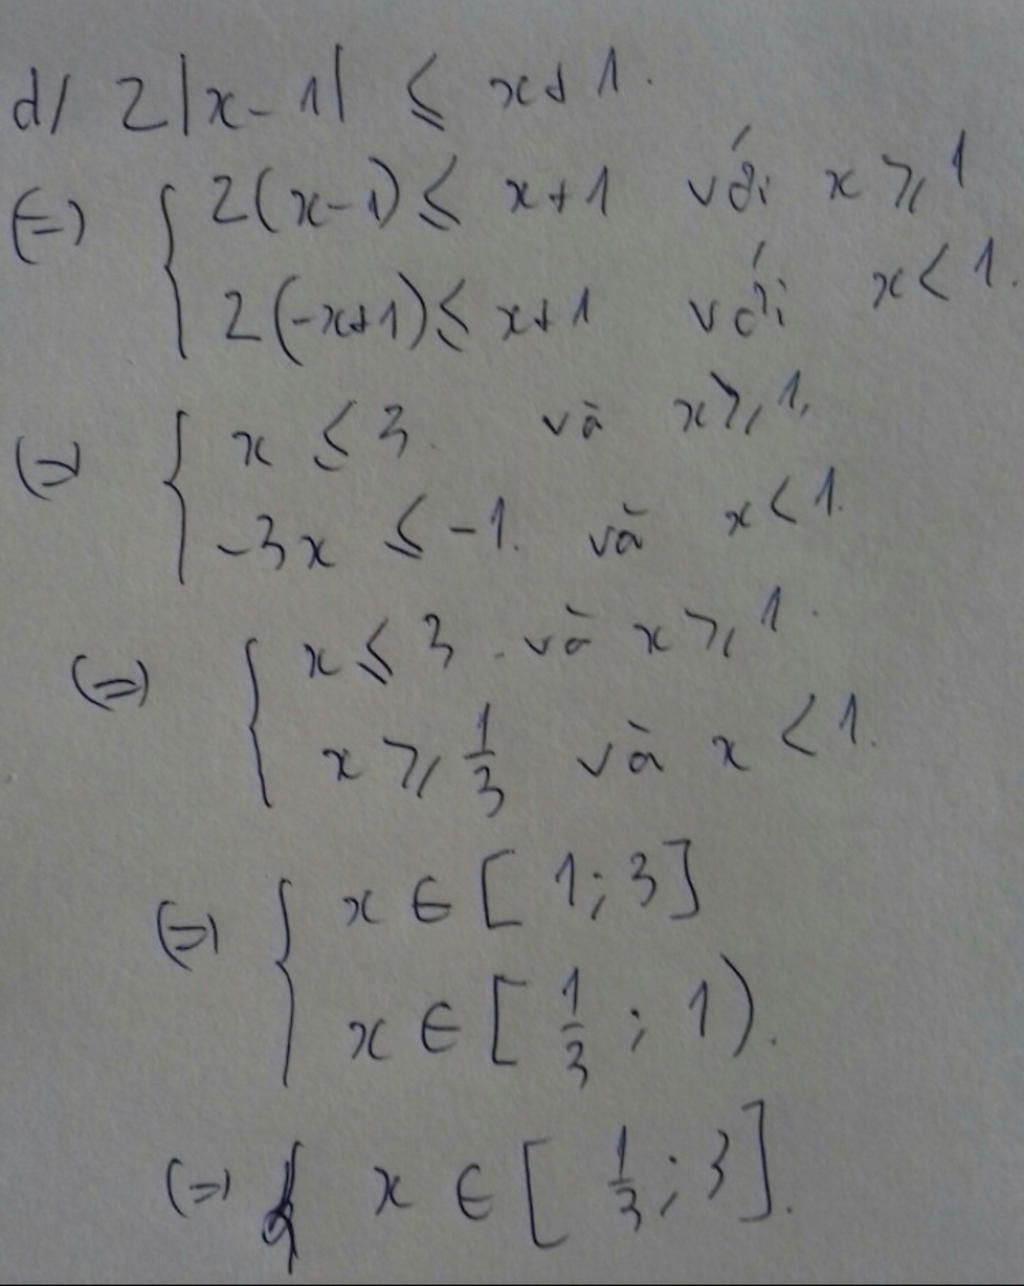 d/ 2|x-1| ≤ x+1.
(=) { 2(x-1) ≤ x+1 với x ≥ 1
2(-x+1) ≤ x+1 với x < 1.
(=) { x ≤ 3. và x ≥ 1.
-3x ≤ -1. và x < 1.
(=) { x ≤ 3 . và x ≥ 1.
x ≥ 1/3 và x < 1.
(=) { x ∈ [ 1; 3]
x ∈ [ 1/3 ; 1).
(=) x ∈ [ 1/3 ; 3].